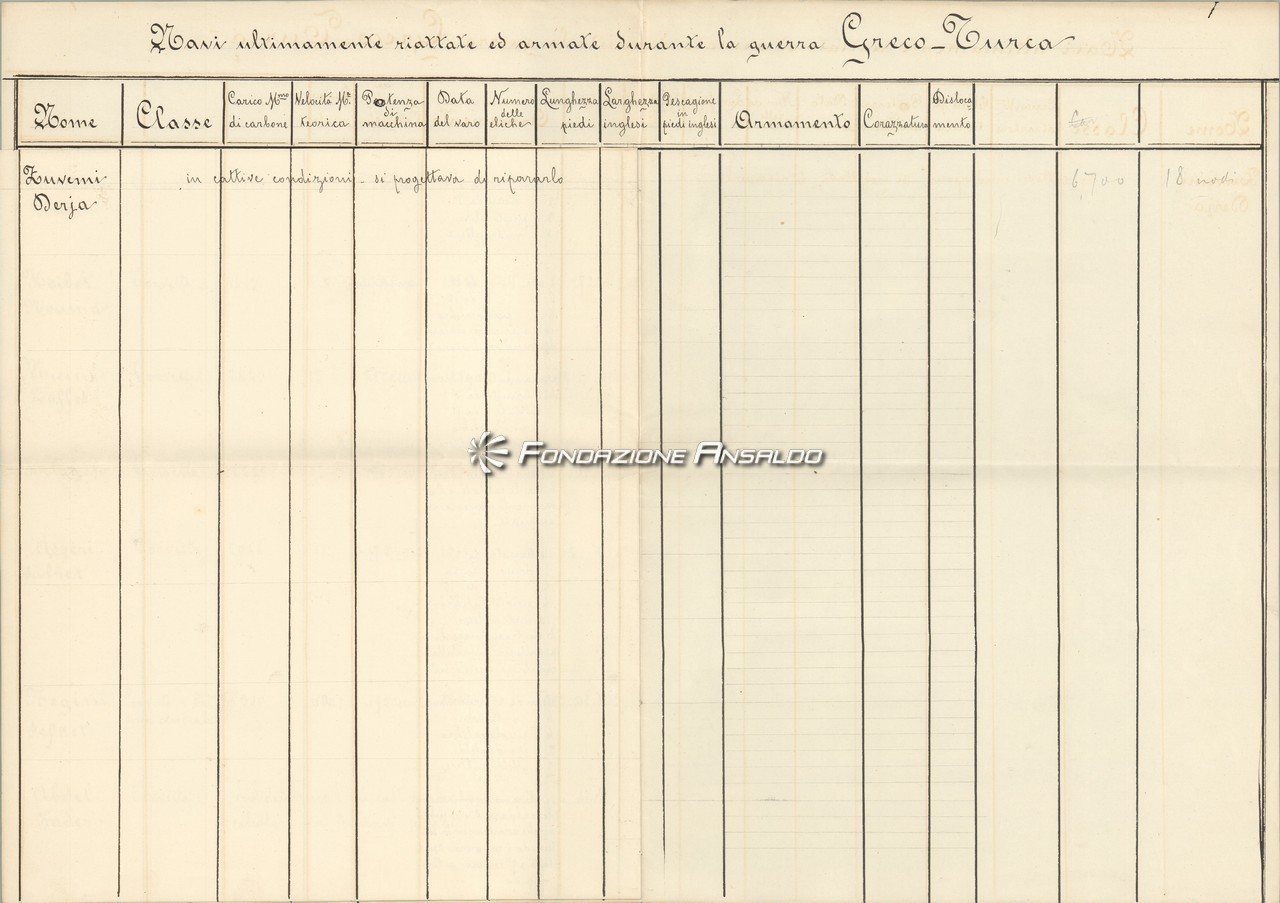 1
Navi ultimamente riattate ed armate durante la guerra Greco-Turca
Nome
Classe
Carico Mmo
di carbone
Velocità Ma
teorica
Potenza
di
macchina
Data
del varo
Numero
delle
eliche
Lunghezza
piedi
Larghezza
inglesi
Pescagione
in
piedi inglesi
Armamento
Corazzatura
Disloca
mento
Zuvemi
Derja
in cattive condizioni - si progettava di ripararlo
6700
18 nodi
FONDAZIONE ANSALDO